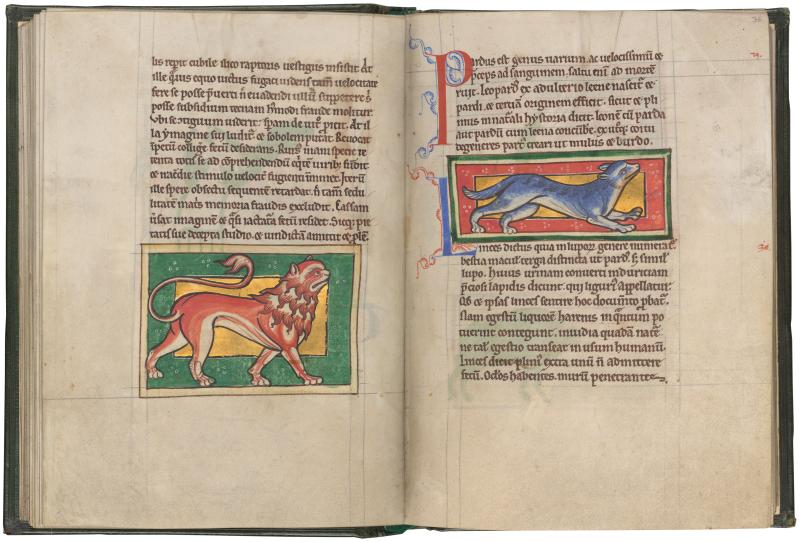 lis repit cubile ilico raptoris uestigiis insistit. At
ille quis equo uictus fugaci uidens tam uelocitate
fere se posse puerti n euadendi ullu suppetere
posse subsidium tecnam hmodi fraude molitur.
Vbi se tiguum uiderit. speram de uit picit. At il
la ymagine sui luditur & sobolem putat. Reuocat
impetu collige fetu desiderans. Rursus inani specie re
tenta totis se ad comprehendendum equite uirib fundit
& iracundie stimulo uelocit fugienti imminet. Iterum
ille spere obiectu sequentem retardat. n tam sedu
litatem matris memoria fraudis excludit. Cassam
uersat imaginem & quasi lactatura fetum residet. Sicque pie
tatis sue decepta studio. & uindictam amittit & prolem.
Pardus est genus uarium. ac uelocissimum &
preceps ad sanguinem. saltu enim ad morte
ruit. Leopard ex adulterio leene nascit &
pardi. & tertiam originem efficit. sicut & pli
nius in naturali hystoria dicit. Leonem cum parda
aut pardum cum leena concubere. & ex utroque coitu
degeneres partus creari ut mulus & burdo.
Linces dictus quia in lupor genere numerat.
bestia macul terga distincta ut pard. S simil
lupo. Huius urinam conuerti in duriciam
preciosi lapidis dicunt. qui ligurius appellatur.
Qd & ipsas linces sentire hoc documento probat.
Nam egestum liquorem harenis in quantum po
tuerint contegunt. inuidia quadam nature
ne talis egestio transeat in usum humanum.
Linces dicit plinius extra unum n admittere
fetum. Oclos habentes. murum penetrante